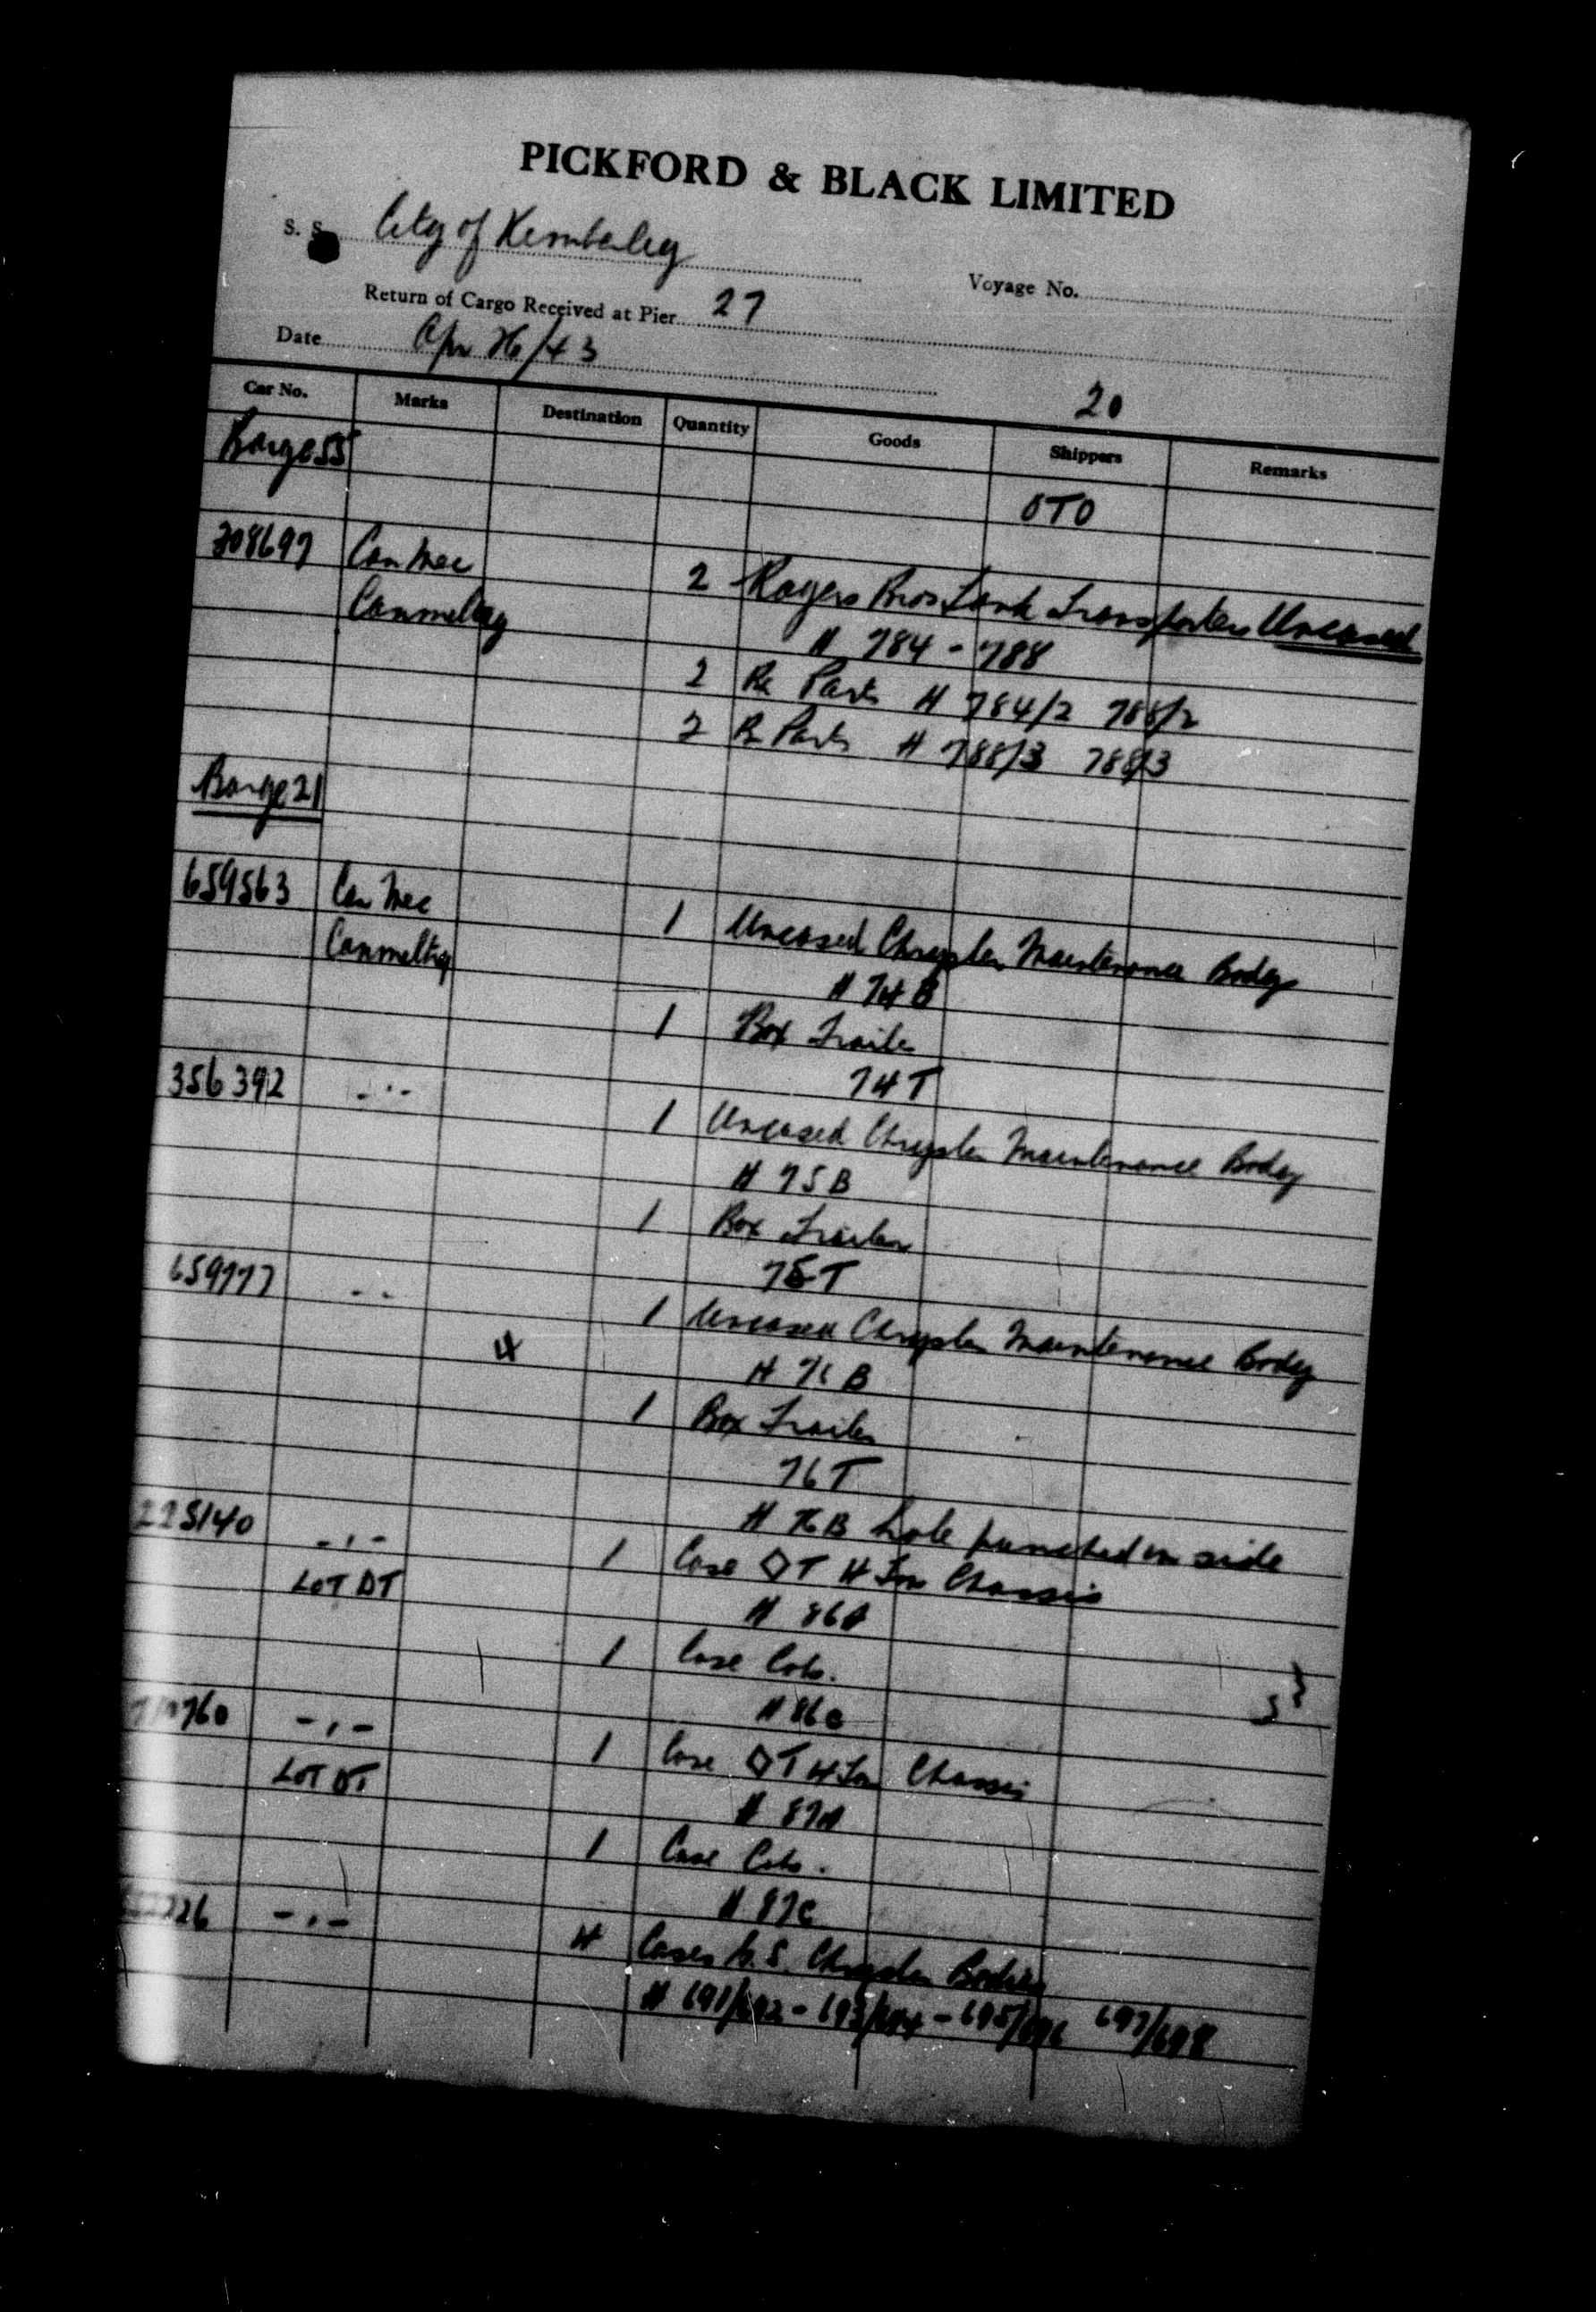 PICKFORD & BLACK LIMITED
S. S. City of Kimberley
Voyage No.
Return of Cargo Received at Pier 27
Date Apr 26/43
20
Car No. Marks Destination Quantity Goods Shippers Remarks
Barge 55
OTO
208697 Can Mec 2 Rogers Bros Tank Transporters Uncased
Canmeltry # 784 - 788
2 Bx Parts # 784/2 788/2
2 Bx Parts # 788/3 788/3
Barge 21
659563 Can Mec 1 Uncased Chrysler Maintenance Body
Canmeltry # 74 B
1 Box Trailer
74 T
356392 - '' - 1 Uncased Chrysler Maintenance Body
# 75 B
1 Box Trailer
75 T
659777 - - 1 Uncased Chrysler Maintenance Body
4 # 76 B
1 Box Trailer
76 T
# 76B hole punched in side
225140 - ' - 1 Case ◇T 4 Ton Chassis
LOT DT # 86A
1 Case Cab.
# 86C
760 - ' - 1 Case ◇T 4 Ton Chassis
LOT DT # 87A
1 Case Cab.
# 87C
226 - ' - 4 Cases G.S. Chrysler Bodies
# 691/692 - 693/694 - 695/696 697/698